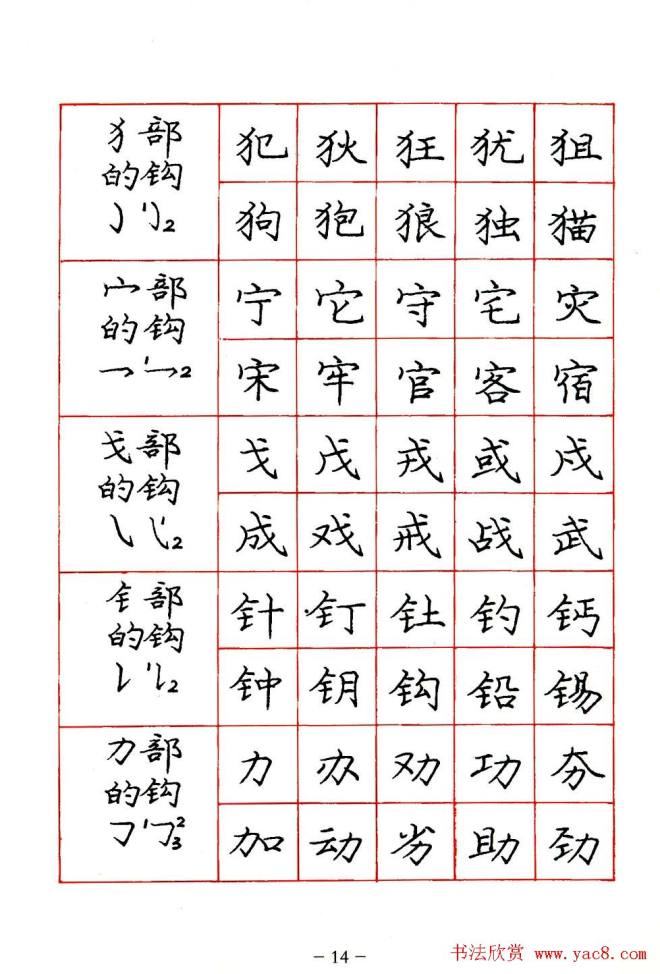 犭部
的钩
犯 狄 狂 犹 狙
狗 狍 狼 独 猫
宀部
的钩
宁 它 守 宅 灾
宋 牢 官 客 宿
戈部
的钩
戈 戊 戎 或 戍
成 戏 戒 战 武
钅部
的钩
针 钉 钍 钓 钙
钟 钥 钩 铅 锡
力部
的钩
力 办 劝 功 夯
加 动 劣 助 劲
- 14 -
书法欣赏 www.yac8.com